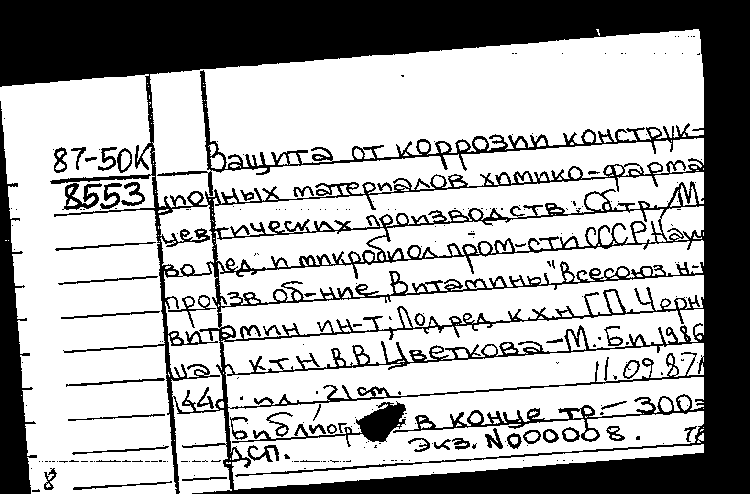 87-50К
8553
Защита от коррозии конструк-
ционных материалов химико-фарма
цевтических производств: Сб.тр. / М-
во мед. и микробиол пром-сти СССР, Науч
произв об-ние "Витамины", Всесоюз. н-и
витамин ин-т; Под ред к.х.н Г.П. Черн
ша и к.т.н. В.В. Цветкова - М.: Б.и., 1986
144с: ил.; 21 cm.
11.09.87
Библиогр в конце тр. - 300э
ДСП.
Экз. N000008.
8